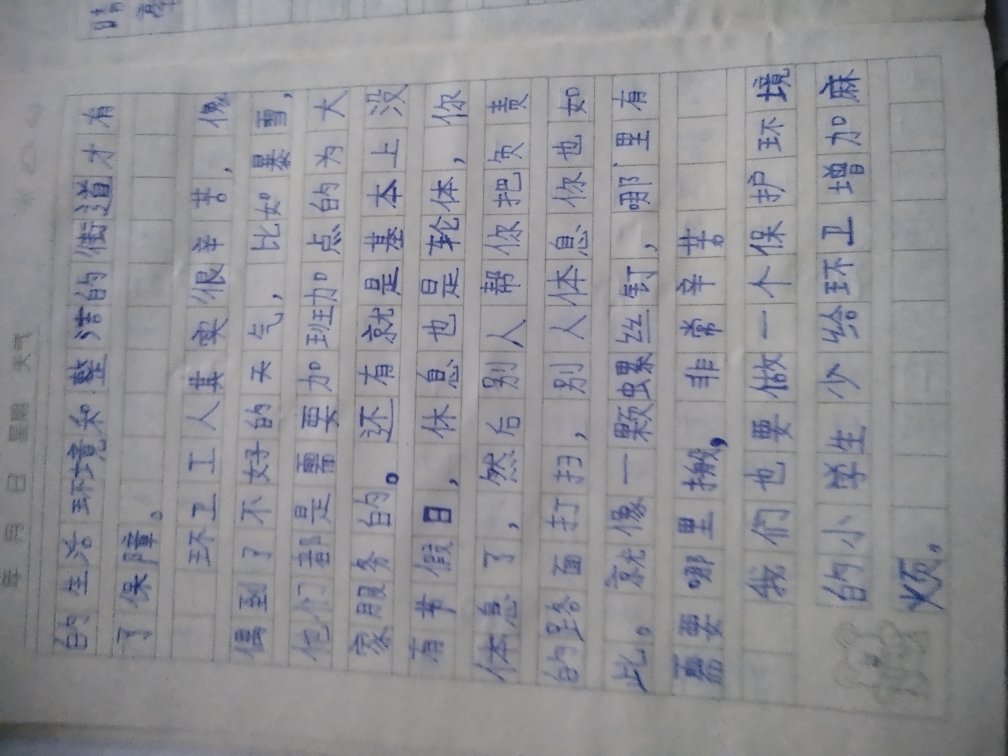 年 月 日 星期 天气
的生活环境和整洁的街道才有
了保障。
环卫工人其实很辛苦，像
遇到了不好的天气，比如暴雪，
他们都是需要加班加点的为大
家服务的。还有就是基本上没
有节假日，休息也是轮体，你
体息了，然后别人帮你把负责
的路面打扫，别人体息你也如
此。就像一颗螺丝钉，哪里有
需要哪里搬，非常辛苦
我们也要做一个保护环境
的小学生少给环卫增加麻
烦。